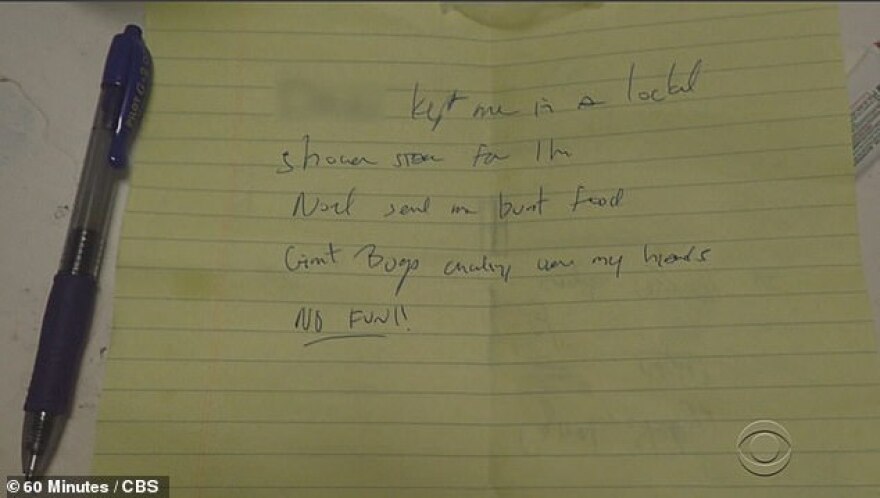 kept me in a locked
shower stall for 1 hr
Noel sent me burnt food
Giant Bugs crawling over my hands
NO FUN!!
PILOT G-2
©60 Minutes / CBS